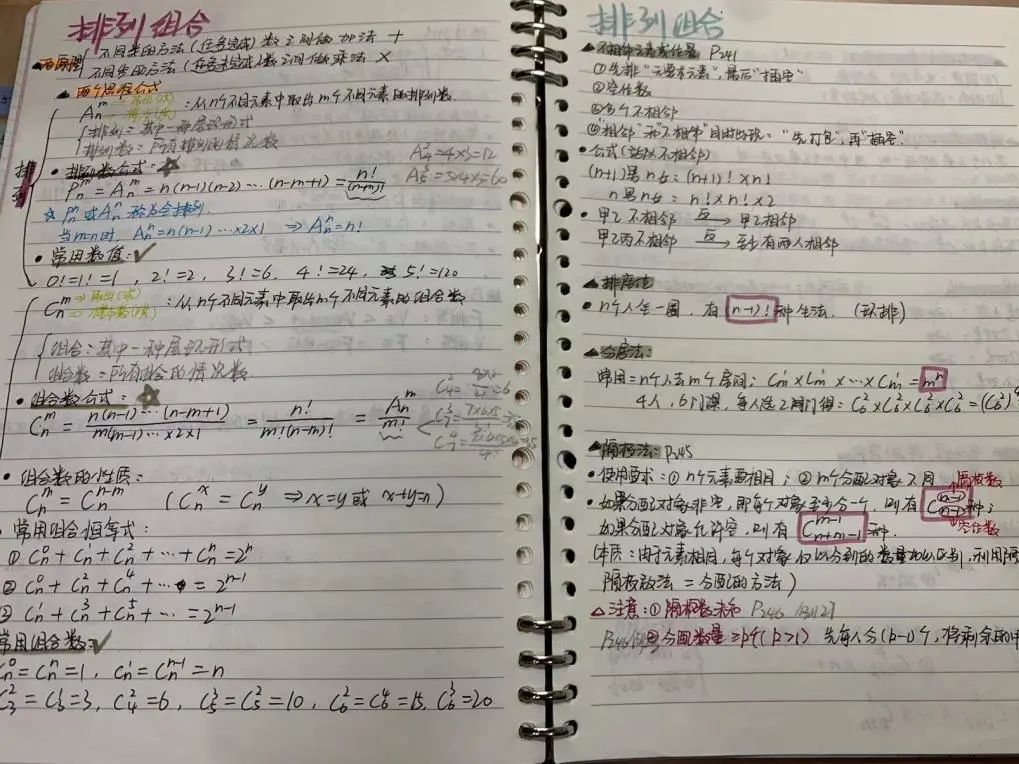 排列组合
两原理 不同类的方法(任务完成)数之间做加法 +
不同步的方法(任务未完成)数之间做乘法 ×
▲两个思维公式
A_n^m :从n个不同元素中取出m个不同元素的排列数.
排列
排列=其中一种展现形式
排列数=所有排列的情况数
A_4^2=4×3=12
A_5^3=5×4×3=60
• 排列数公式:☆
P_n^m = A_n^m = n(n-1)(n-2)…(n-m+1) = n!/(n-m)!
☆ P_n^n 或 A_n^n 称为全排列.
当m=n时 A_n^n = n(n-1)…×2×1 ⇒ A_n^n = n!
• 常用数值:✓
0!=1!=1, 2!=2, 3!=6, 4!=24, 5!=120
C_n^m :从n个不同元素中取出m个不同元素的组合数
组合:其中一种展现形式
组合数=所有组合的情况数.
• 组合数公式:☆
C_n^m = n(n-1)…(n-m+1)/m(m-1)…×2×1 = n!/m!(n-m)! = A_n^m/m!
• 组合数的性质:
C_n^m = C_n^{n-m} (C_n^x = C_n^y ⇒ x=y 或 x+y=n)
常用组合恒等式:
① C_n^0 + C_n^1 + C_n^2 + … + C_n^n = 2^n
② C_n^0 + C_n^2 + C_n^4 + … = 2^{n-1}
③ C_n^1 + C_n^3 + C_n^5 + … = 2^{n-1}
常用组合数:✓
C_n^0 = C_n^n = 1, C_n^1 = C_n^{n-1} = n
C_3^2 = C_3^1 = 3, C_4^2 = 6, C_5^3 = C_5^2 = 10, C_6^2 = C_6^4 = 15, C_6^3 = 20
排列组合
P241
①先排"元要求元素",最后"插空"
②空位数
③多个不相邻
④"相邻"和"不相邻"同时出现:"先打包",再"插空".
• 公式(站队不相邻)
(n+1)男n女:(n+1)!×n!
n男n女:n!×n!×2
• 甲乙不相邻 反→ 甲乙相邻
甲乙丙不相邻 反→ 至少有两人相邻
▲排座法
• n个人坐一圈,有(n-1)!种坐法. (环排)
▲分房法:
常用=n个人去m个房间:C_m^1×C_m^1×…×C_m^1=m^n
4人,6门课,每人选2门得:C_6^2×C_6^2×C_6^2×C_6^2=(C_6^2)^4
▲隔板法:P245
• 使用要求:①n个元素要相同;②m个分配对象不同 隔板数
• 如果分配对象非空,即每个对象至少分一个,则有C_{n-1}^{m-1}种;
如果分配对象允许空,则有C_{n+m-1}^{m-1}种. 空位数
(本质:由于元素相同,每个对象仅以分到的数量加以区别,利用隔
隔板放法=分配的方法)
△注意:①隔板数未知 P246
P246 ②分配数量≥p个(p>1) 先每人分(p-1)个,将剩余的